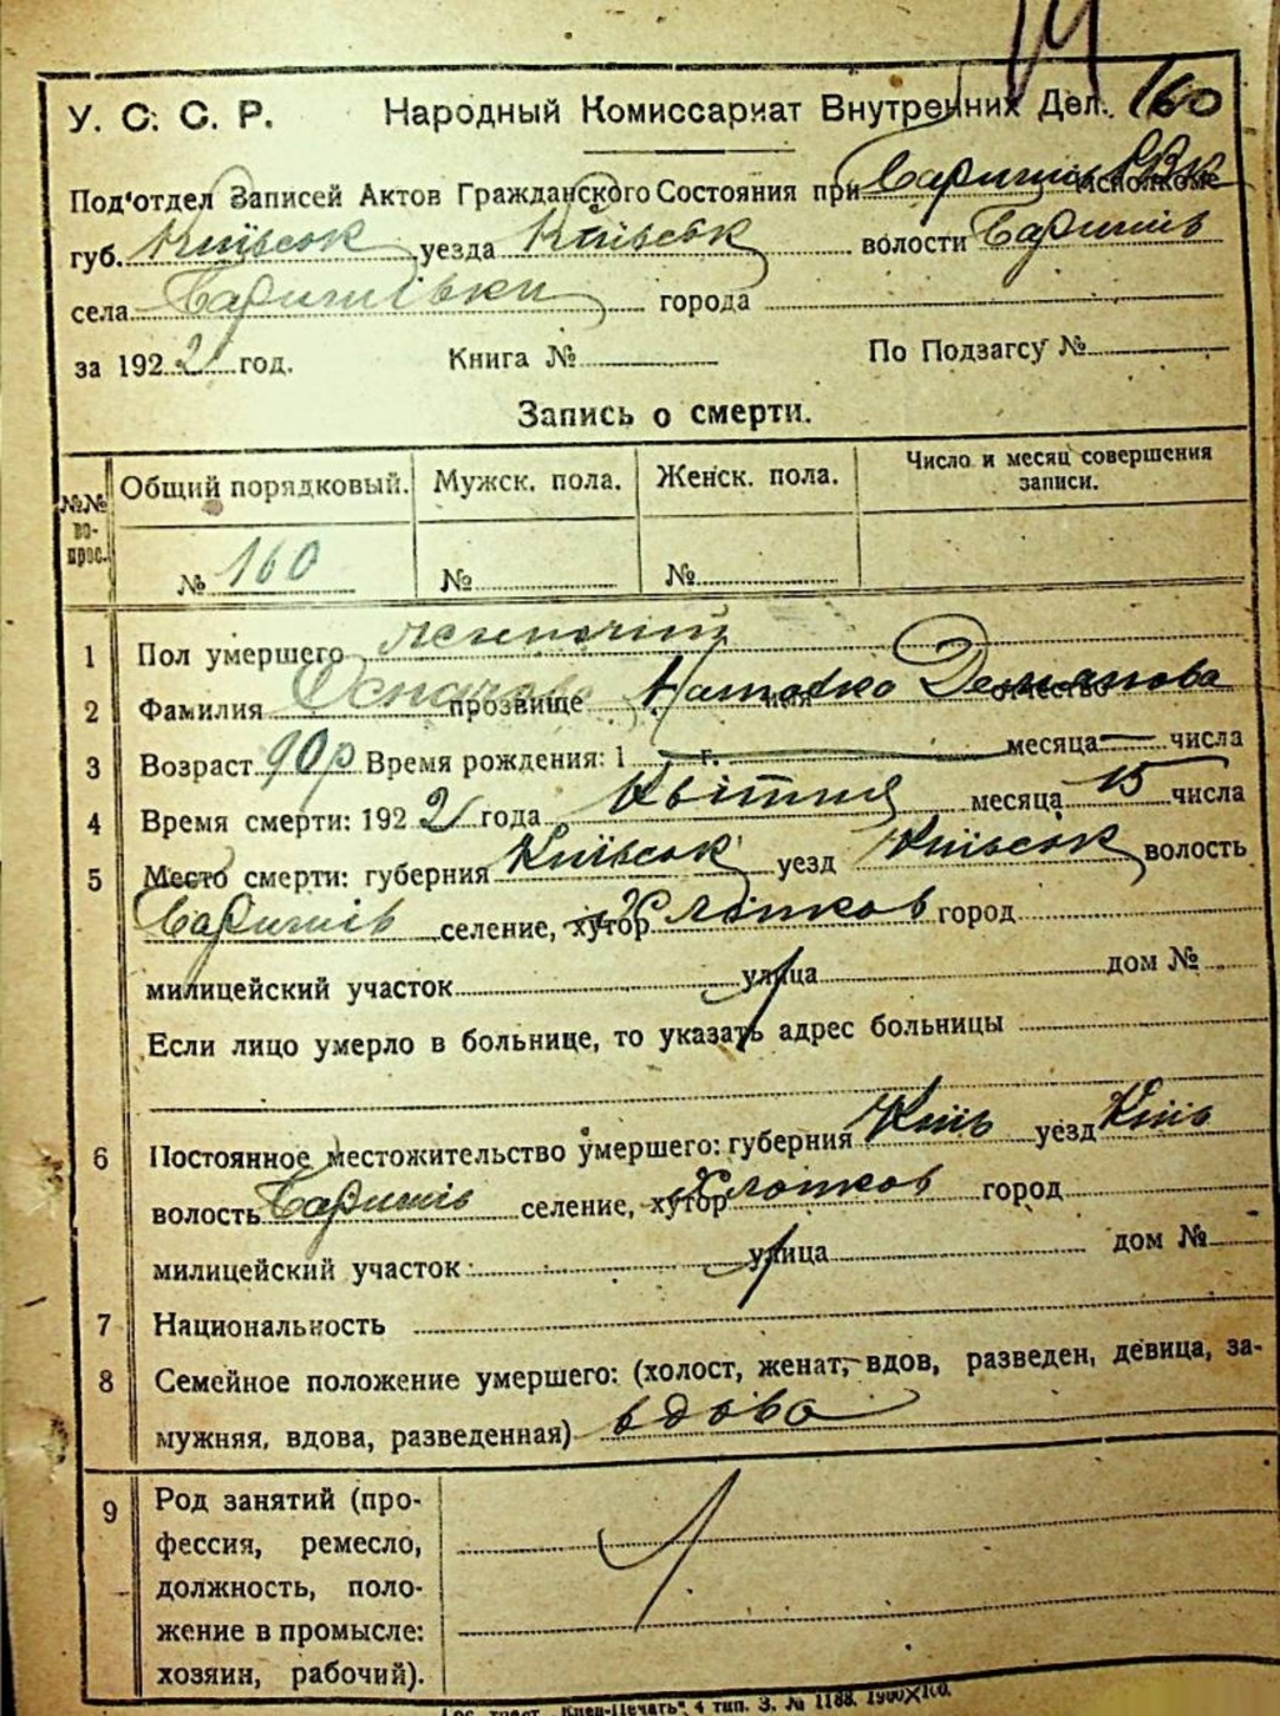 У. С. С. Р. Народный Комиссариат Внутренних Дел. 160
Под'отдел Записей Актов Гражданского Состояния при Баришів РВК исполкоме
губ. Київськ уезда Київськ волости Баришів
села Баришівки города
за 1922 год. Книга № По Подзагсу №
Запись о смерти.
№№ вопрос. Общий порядковый. Мужск. пола. Женск. пола. Число и месяц совершения записи.
№ 160 № №
1 Пол умершего женочий
2 Фамилия прозвище имя Демянова отчество
3 Возраст 90 р Время рождения: 1 г. — месяца — числа
4 Время смерти: 1922 года Квітня месяца 15 числа
5 Место смерти: губерния Київськ уезд Київськ волость
Баришів селение, хутор Хлопков город
милицейский участок улица дом №
Если лицо умерло в больнице, то указать адрес больницы
6 Постоянное местожительство умершего: губерния Київ уезд Київ
волость Баришів селение, хутор Хлопков город
милицейский участок улица дом №
7 Национальность
8 Семейное положение умершего: (холост, женат, вдов, разведен, девица, за-
мужняя, вдова, разведенная) вдова
9 Род занятий (про-
фессия, ремесло,
должность, поло-
жение в промысле:
хозяин, рабочий).
4 тип. З. № 1188.